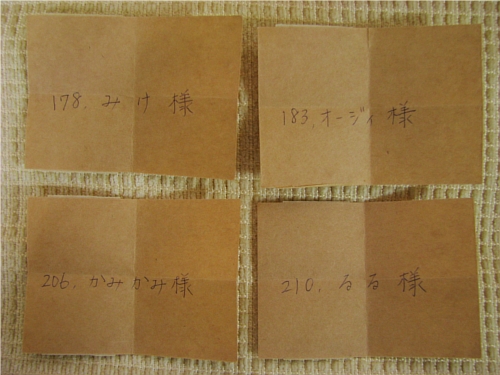 178. みけ様
183. オージィ様
206. かみかみ様
210. るる様